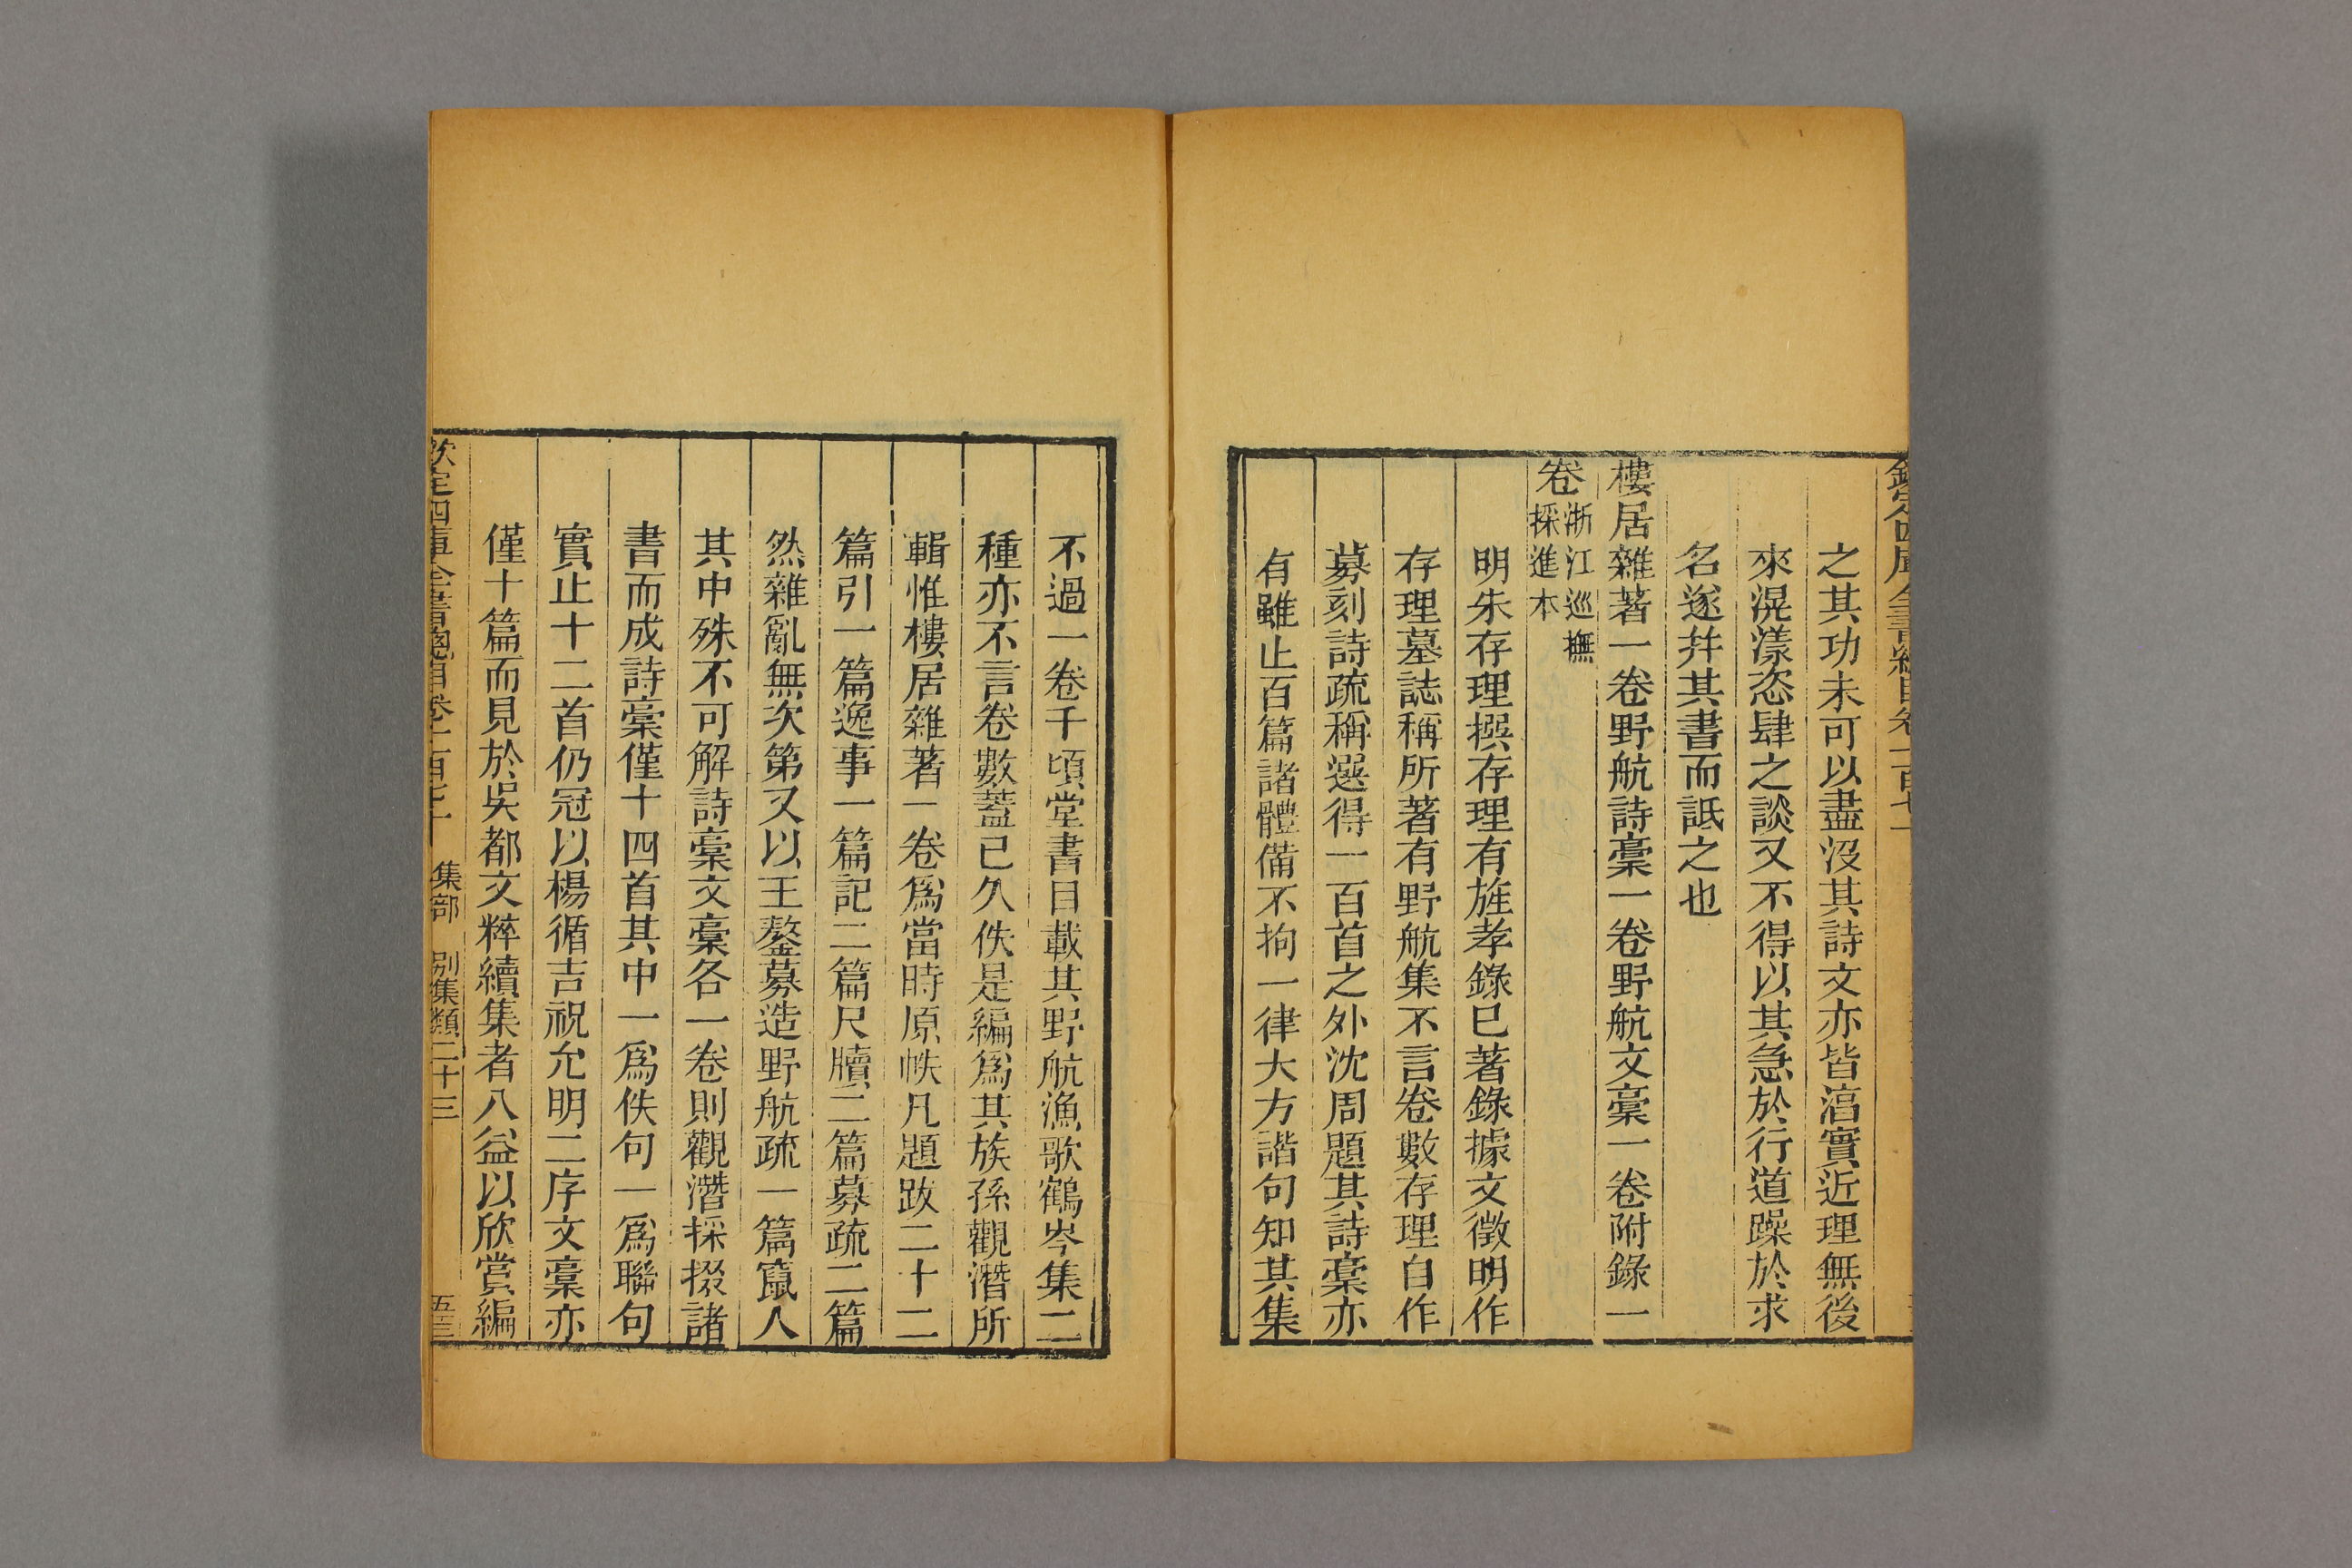 之其功未可以盡沒其詩文亦皆滔實近理無後
來滉漾恣肆之談又不得以其急於行道躁於求
名遂并其書而詆之也
樓居雜著一卷野航詩稾一卷野航文稾一卷附錄一
卷浙江巡撫
採進本
明朱存理撰存理有旌孝錄已著錄據文徵明作
存理墓誌稱所著有野航集不言卷數存理自作
募刻詩疏稱選得一百首之外沈周題其詩稾亦
有雖止百篇諸體備不拘一律大方諧句知其集
不過一卷千頃堂書目載其野航漁歌鶴岑集二
種亦不言卷數蓋已久佚是編爲其族孫觀潛所
輯惟樓居雜著一卷爲當時原帙凡題跋二十二
篇引一篇逸事一篇記二篇尺牘二篇募疏二篇
然雜亂無次第又以王鏊募造野航疏一篇竄入
其中殊不可解詩稾文稾各一卷則觀潛採掇諸
書而成詩稾僅十四首其中一爲佚句一爲聯句
實止十二首仍冠以楊循吉祝允明二序文稾亦
僅十篇而見於吳都文粹續集者八益以欣賞編
欽定四庫全書總目卷一百七十一 集部 別集類二十三 五三